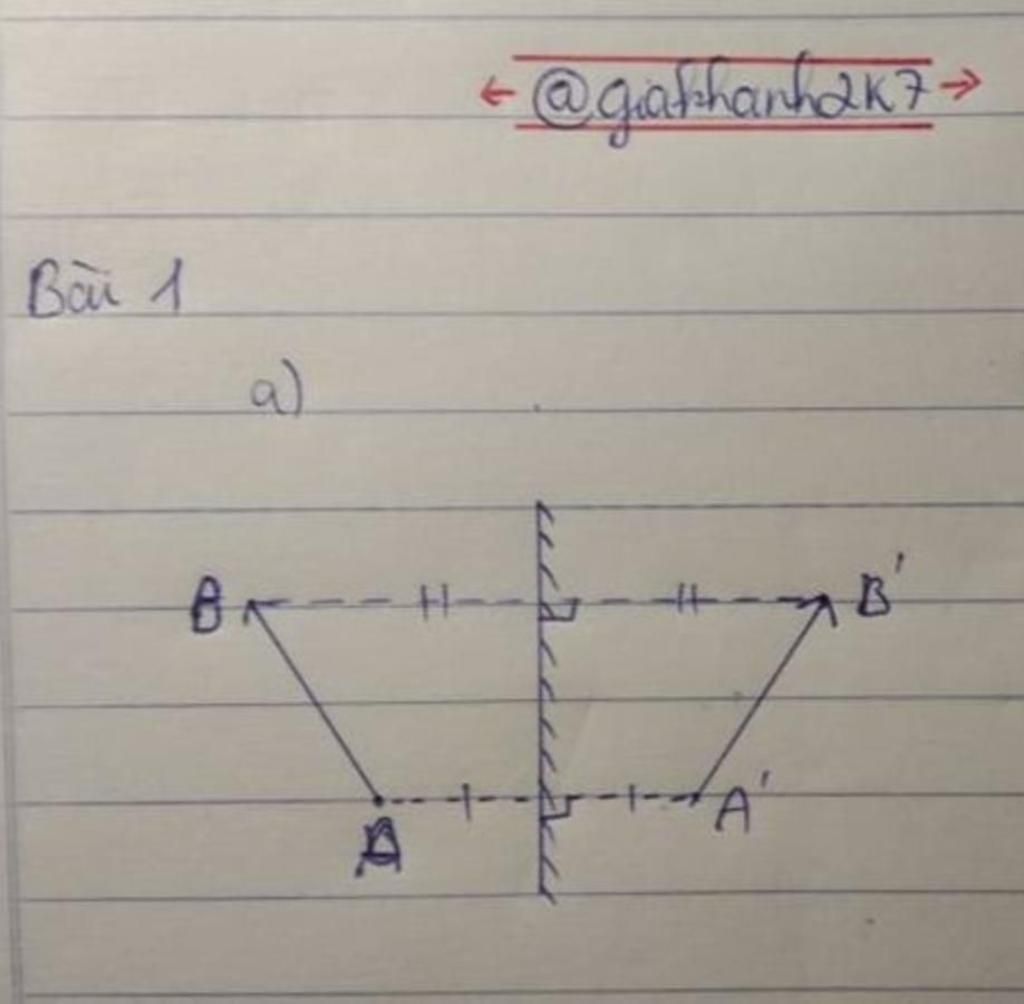 ← @giakhanh2k7 →
Bài 1
a)
B B'
A A'